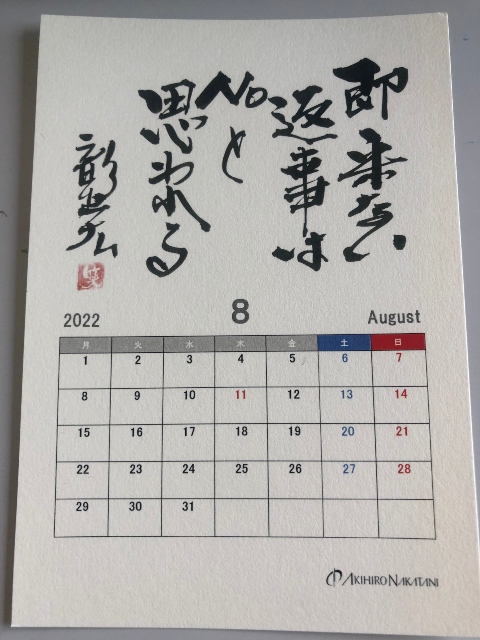 即来ない
返事は
Noと
思われる
彰宏
2022 8 August
月 火 水 木 金 土 日
1 2 3 4 5 6 7
8 9 10 11 12 13 14
15 16 17 18 19 20 21
22 23 24 25 26 27 28
29 30 31
AKIHIRO NAKATANI